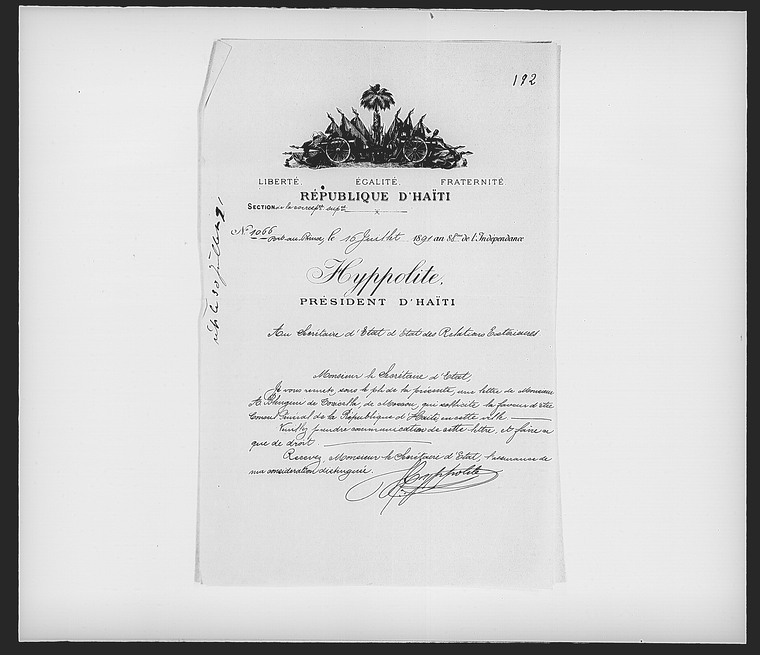 192
LIBERTÉ. ÉGALITÉ. FRATERNITÉ.
RÉPUBLIQUE D'HAÏTI
SECTION de la corresp.ce
N.o 1066
Port-au-Prince, le 16 Juillet 1891 an 88me de l'Indépendance
Hyppolite,
PRÉSIDENT D'HAÏTI
Au Secrétaire d'Etat d'Etat des Relations Exterieures
Monsieur le Secrétaire d'Etat,
Je vous remets, sous le pli de la présente, une lettre de Monsieur
de Moscou, qui sollicite la faveur d'être
Consul Général de la République d'Haïti, en cette ville.
Veuillez prendre communication de cette lettre, et faire ce
que de droit.
Recevez, Monsieur le Secrétaire d'Etat, l'assurance de
ma considération distinguée.
Hyppolite
le 30 Juillet 91